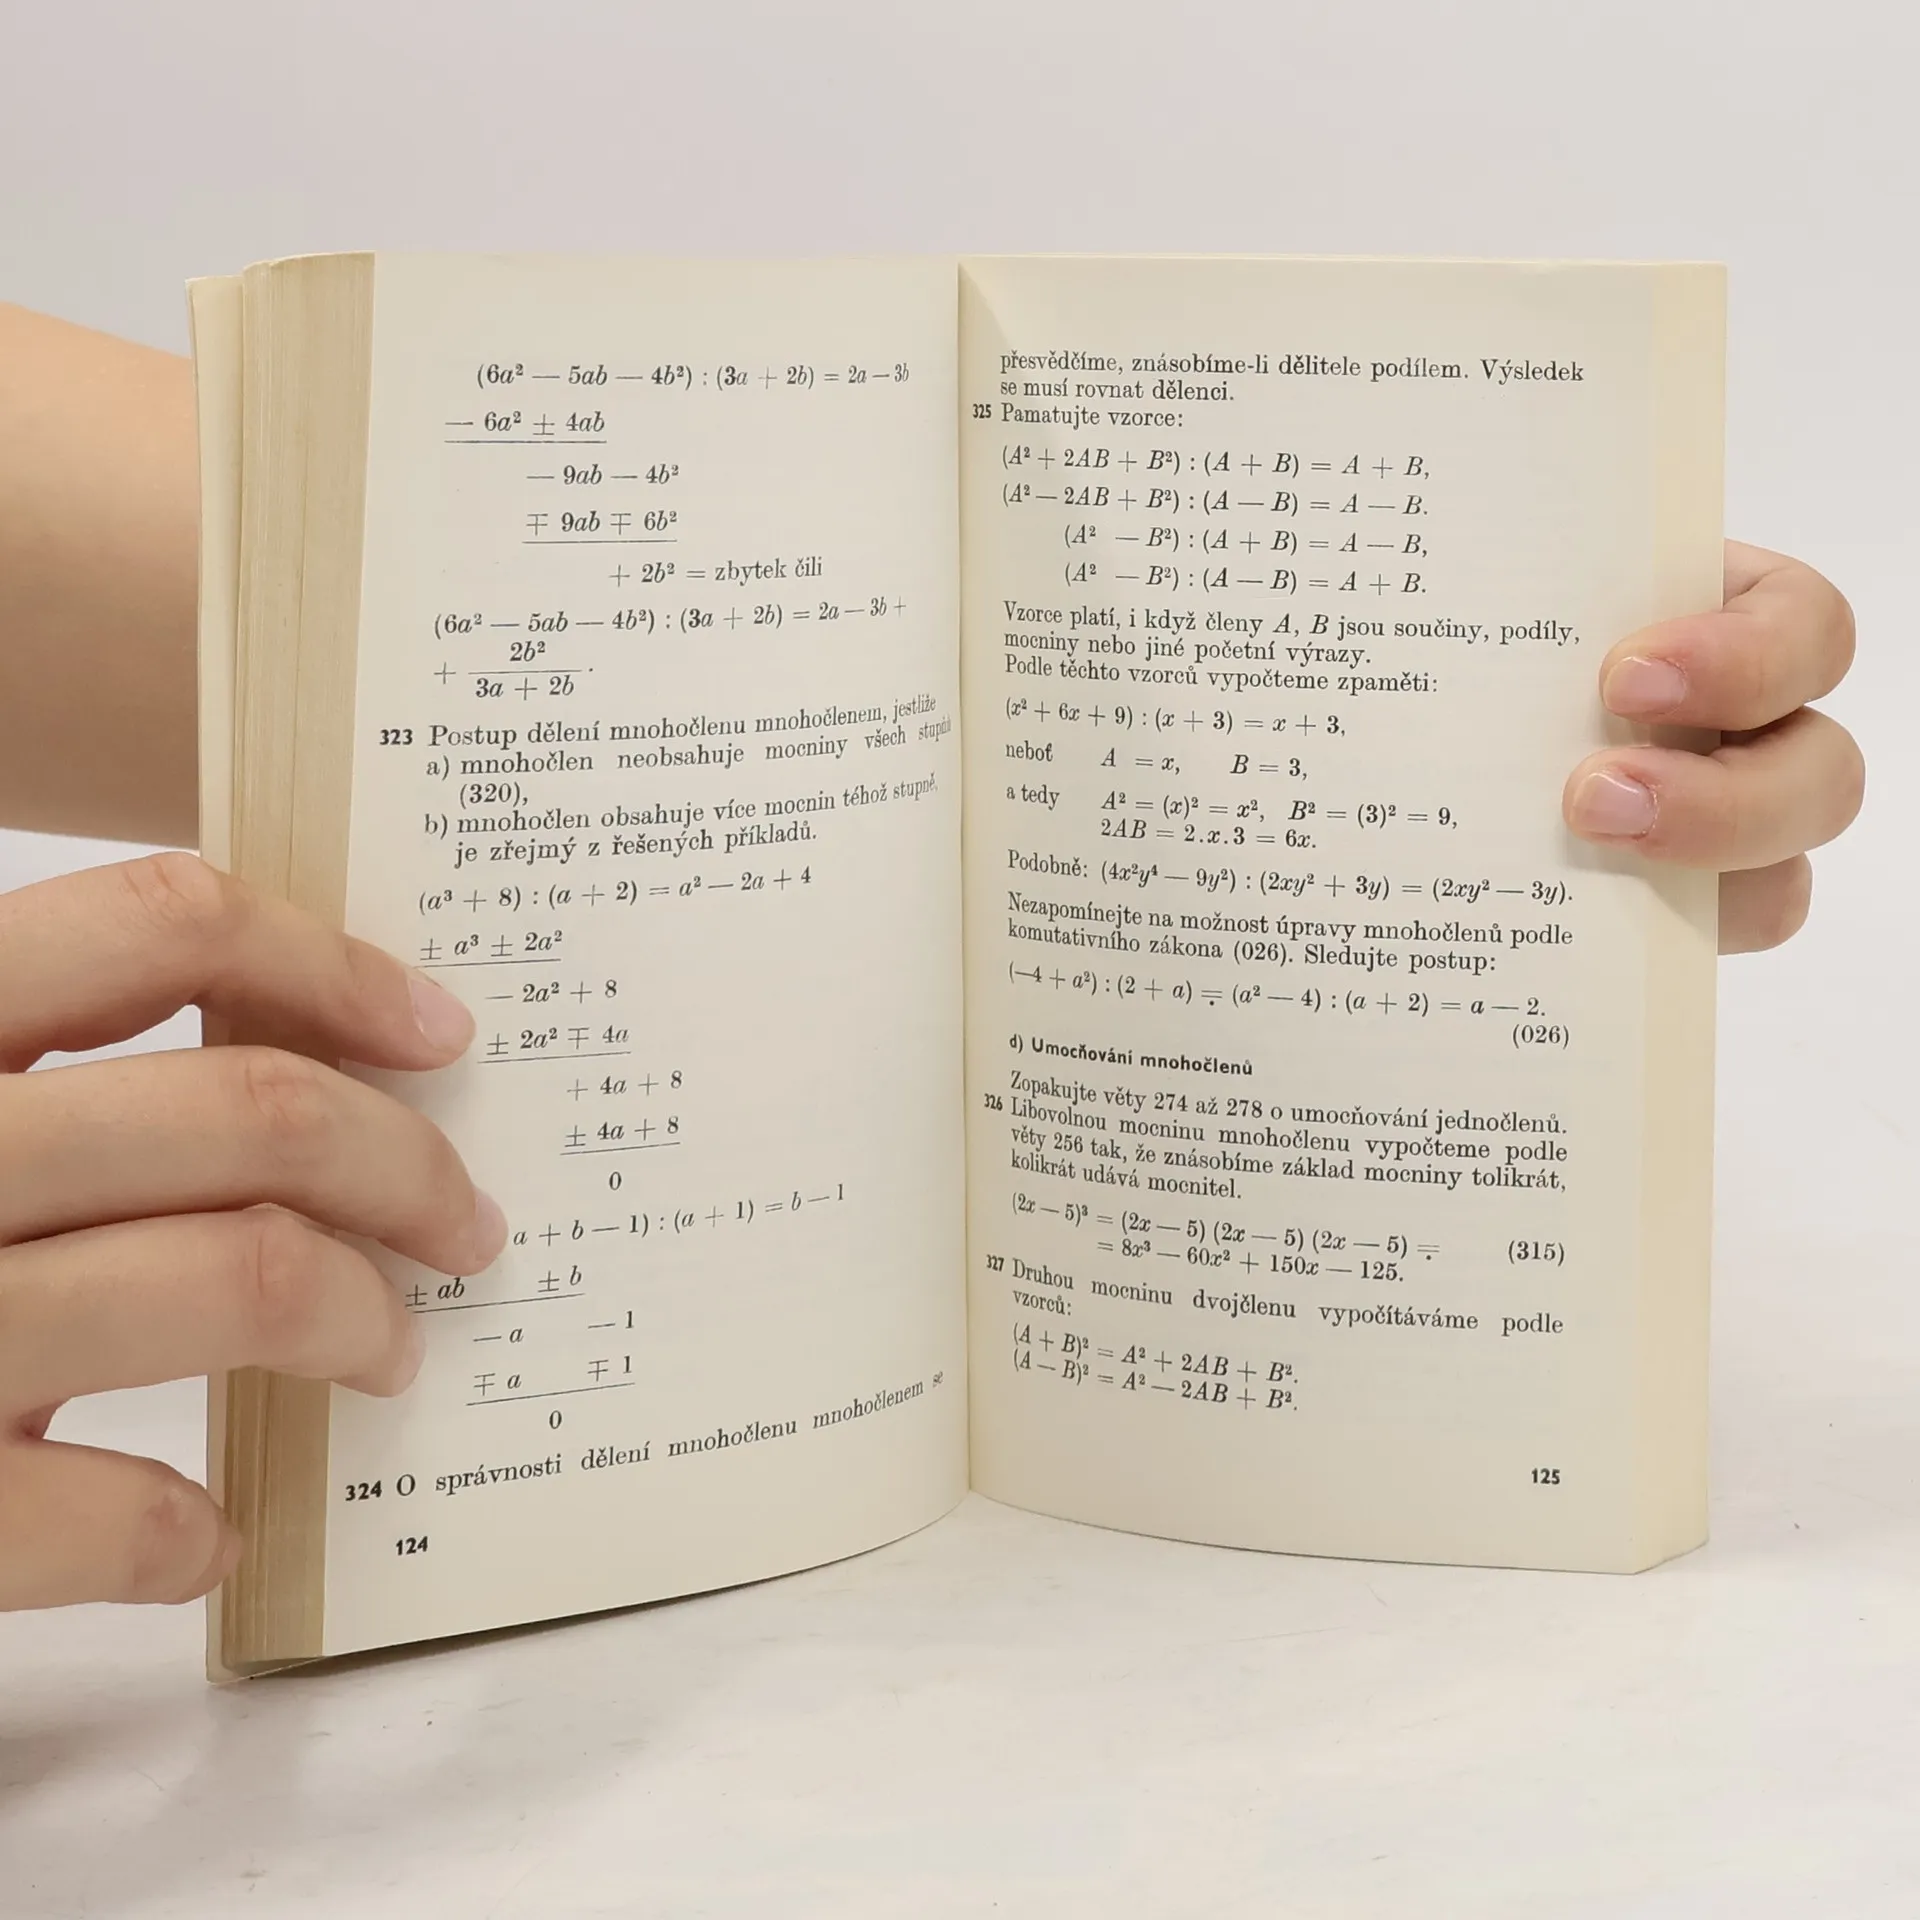 (6a² — 5ab — 4b²) : (3a + 2b) = 2a — 3b
— 6a² ± 4ab
— 9ab — 4b²
∓ 9ab ∓ 6b²
+ 2b² = zbytek čili
(6a² — 5ab — 4b²) : (3a + 2b) = 2a — 3b +
2b²
+
3a + 2b .
323 Postup dělení mnohočlenu mnohočlenem, jestliže
a) mnohočlen neobsahuje mocniny všech
(320),
b) mnohočlen obsahuje více mocnin téhož stupně,
je zřejmý z řešených příkladů.
(a³ + 8) : (a + 2) = a² — 2a + 4
± a³ ± 2a²
— 2a² + 8
± 2a² ∓ 4a
+ 4a + 8
± 4a + 8
0
a + b — 1) : (a + 1) = b — 1
± ab ± b
— a — 1
∓ a ∓ 1
0
324 O správnosti dělení mnohočlenu mnohočlenem se
124
přesvědčíme, znásobíme-li dělitele podílem. Výsledek
se musí rovnat dělenci.
325 Pamatujte vzorce:
(A² + 2AB + B²) : (A + B) = A + B,
(A² — 2AB + B²) : (A — B) = A — B.
(A² — B²) : (A + B) = A — B,
(A² — B²) : (A — B) = A + B.
Vzorce platí, i když členy A, B jsou součiny, podíly,
mocniny nebo jiné početní výrazy.
Podle těchto vzorců vypočteme zpaměti:
(x² + 6x + 9) : (x + 3) = x + 3,
neboť A = x, B = 3,
a tedy A² = (x)² = x², B² = (3)² = 9,
2AB = 2.x.3 = 6x.
Podobně: (4x²y⁴ — 9y²) : (2xy² + 3y) = (2xy² — 3y).
Nezapomínejte na možnost úpravy mnohočlenů podle
komutativního zákona (026). Sledujte postup:
(—4 + a²) : (2 + a) = (a² — 4) : (a + 2) = a — 2.
(026)
d) Umocňování mnohočlenů
Zopakujte věty 274 až 278 o umocňování jednočlenů.
326 Libovolnou mocninu mnohočlenu vypočteme podle
věty 256 tak, že znásobíme základ mocniny tolikrát,
kolikrát udává mocnitel.
(2x — 5)³ = (2x — 5) (2x — 5) (2x — 5) = (315)
= 8x³ — 60x² + 150x — 125.
327 Druhou mocninu dvojčlenu vypočítáváme podle
vzorců:
(A + B)² = A² + 2AB + B².
(A — B)² = A² — 2AB + B².
125